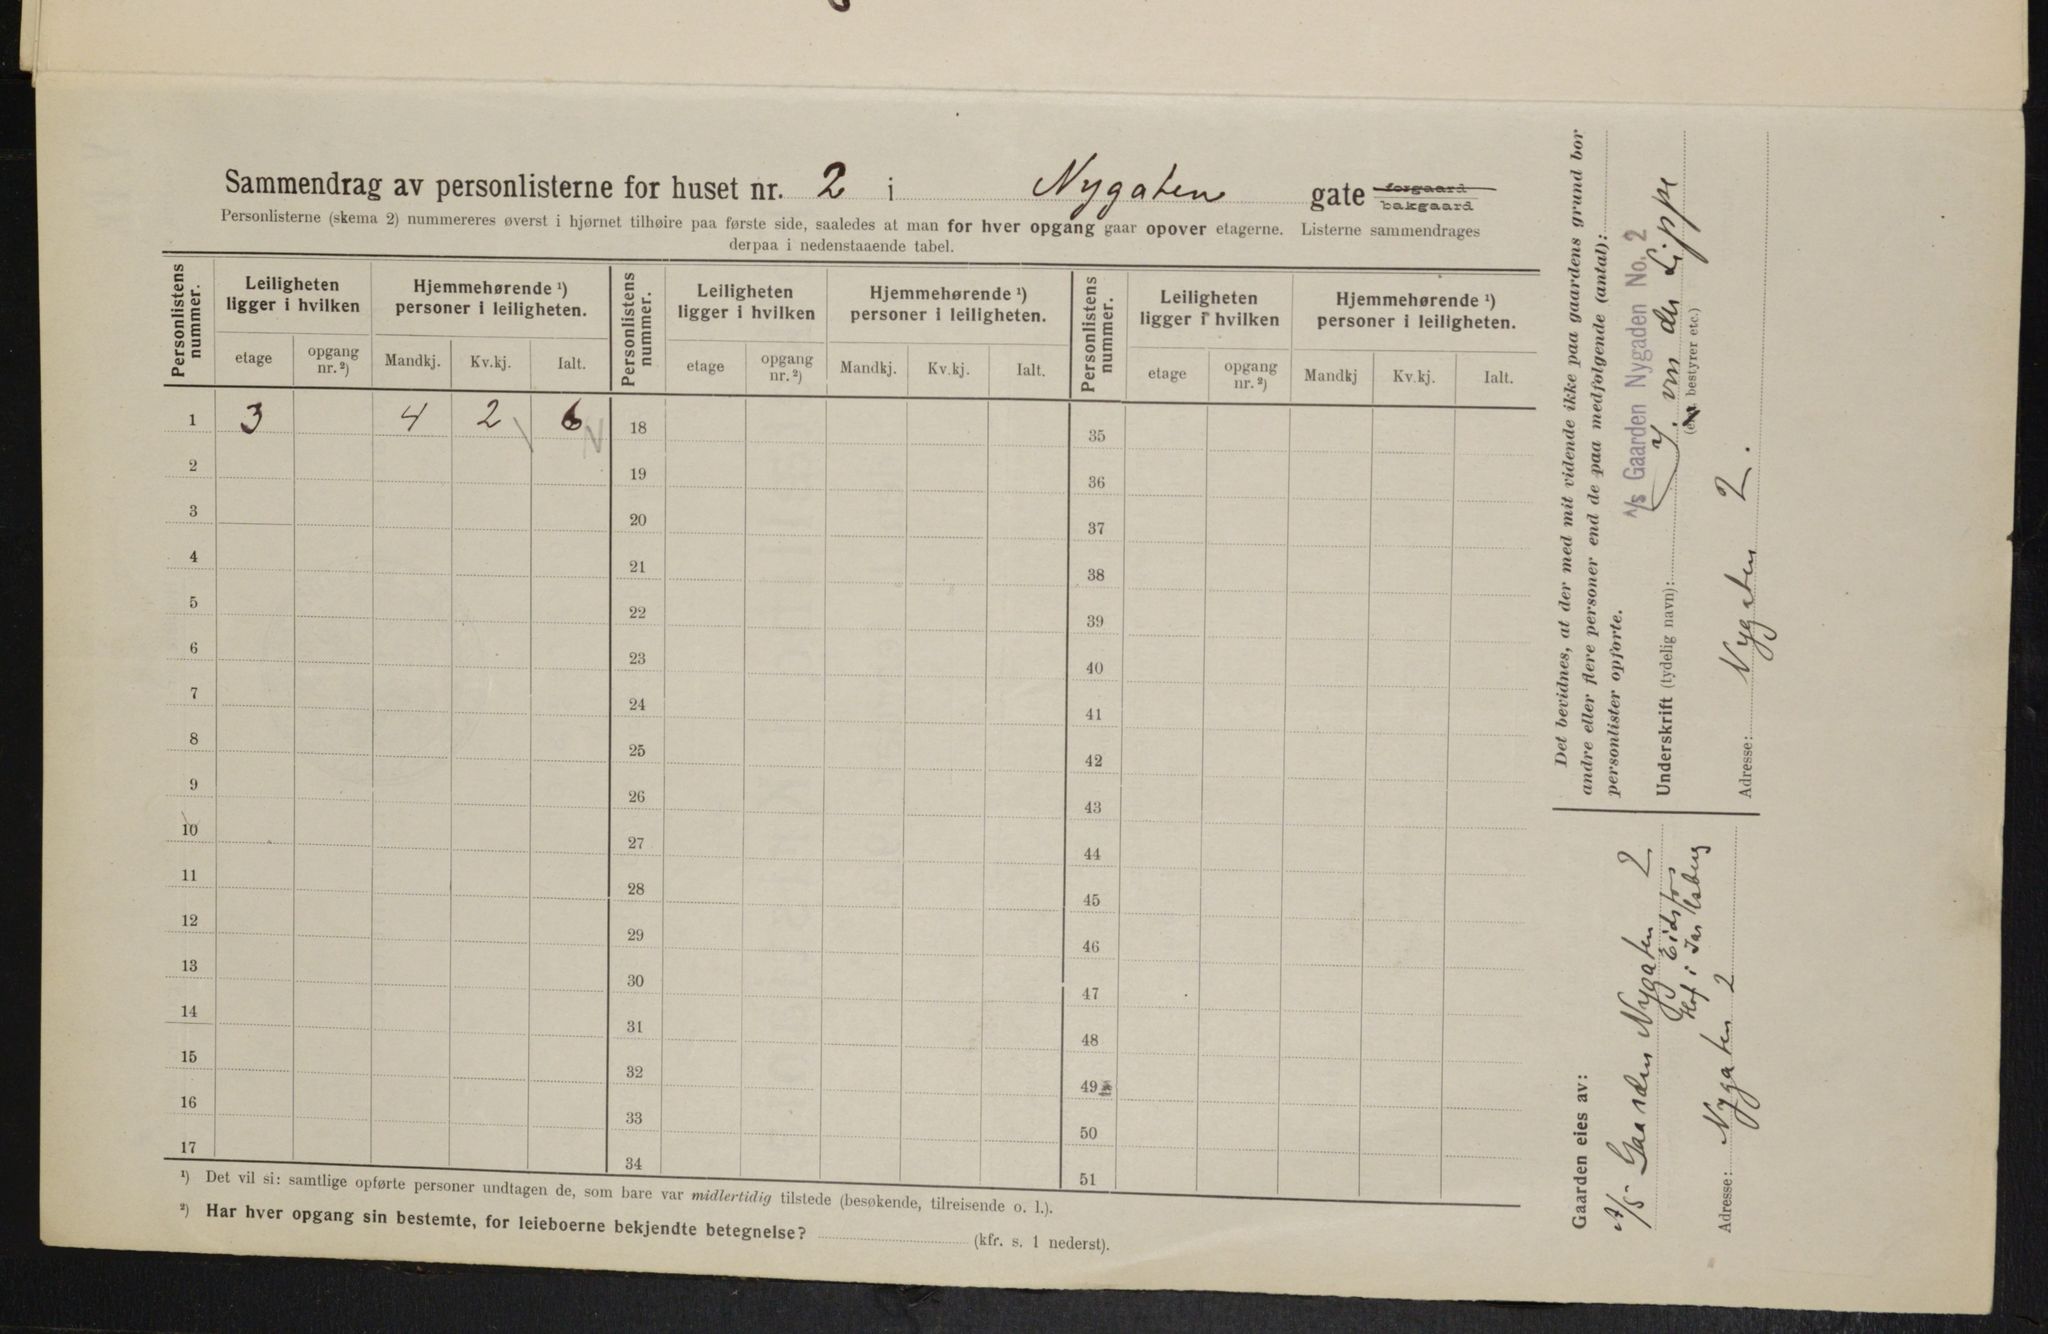 Sammendrag av personlisterne for huset nr. 2 i Nygaten gate forgaard bakgaard
Personlisterne (skema 2) nummereres øverst i hjørnet tilhøire paa første side, saaledes at man for hver opgang gaar opover etagerne. Listerne sammendrages
derpaa i nedenstaaende tabel.
Personlistens nummer.
Leiligheten ligger i hvilken
Hjemmehørende ¹) personer i leiligheten.
etage
opgang nr. ²)
Mandkj.
Kv.kj.
Ialt.
Personlistens nummer.
Leiligheten ligger i hvilken
Hjemmehørende ¹) personer i leiligheten.
etage
opgang nr. ²)
Mandkj.
Kv.kj.
Ialt.
Personlistens nummer.
Leiligheten ligger i hvilken
Hjemmehørende ¹) personer i leiligheten.
etage
opgang nr. ²)
Mandkj
Kv.kj.
Ialt.
1 3 4 2 6 18 35
2 19 36
3 20 37
4 21 38
5 22 39
6 23 40
7 24 41
8 25 42
9 26 43
10 27 44
11 28 45
12 29 46
13 30 47
14 31 48
15 32 49
16 33 50
17 34 51
¹) Det vil si: samtlige opførte personer undtagen de, som bare var midlertidig tilstede (besøkende, tilreisende o. l.).
²) Har hver opgang sin bestemte, for leieboerne bekjendte betegnelse? (kfr. s. 1 nederst).
Det bevidnes, at der med mit vidende ikke paa gaardens grund bor
andre eller flere personer end de paa medfølgende (antal):
personlister opførte.
A/S Gaarden Nygaden No. 2
Underskrift (tydelig navn): von der Lippe
bestyrer etc.)
Adresse: Nygaten 2.
Gaarden eies av:
A/S Gaarden Nygaten 2
Eidsfos
Hof i Jarlsberg
Adresse: Nygaten 2